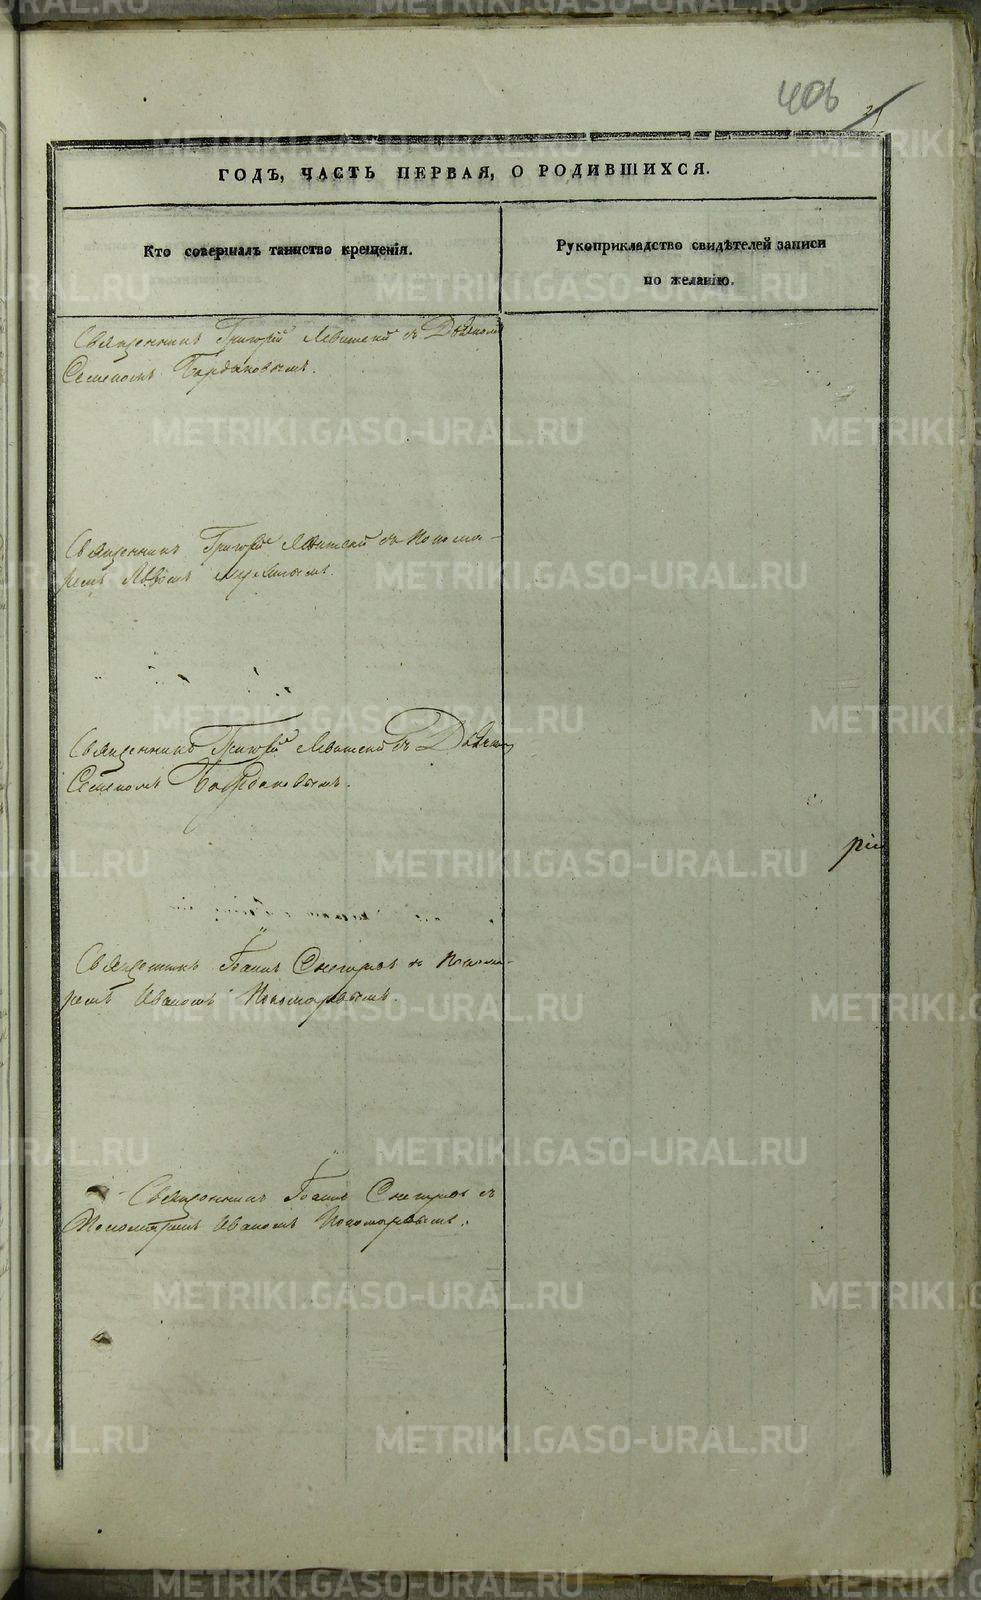 406
25
ГОДЪ, ЧАСТЬ ПЕРВАЯ, О РОДИВШИХСЯ.
Кто совершалъ таинство крещенія.
Рукоприкладство свидѣтелей записи
по желанію.
Священникъ Григорій Левитскій съ Дьякономъ
Семеномъ Бардаковымъ.
Священникъ Григорій Левитскій съ Понома-
ремъ Львомъ
Священникъ Григорій Левитскій съ Дьякономъ
Семеномъ Бардаковымъ.
Священникъ Іоаннъ Снегиревъ съ Понома-
ремъ Иваномъ Пономаревымъ.
Священникъ Іоаннъ Снегиревъ съ
Пономаремъ Иваномъ Пономаревымъ.
METRIKI.GASO-URAL.RU